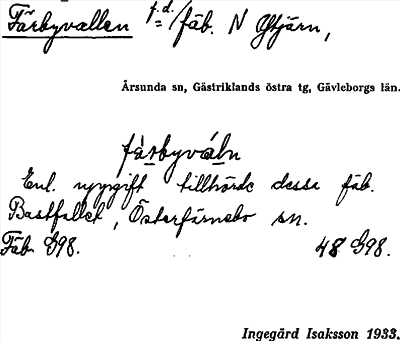 Färbyvallen f.d./fäb. N Gtjärn,
Årsunda sn, Gästriklands östra tg, Gävleborgs län.
färbyváln
Enl. uppgift tillhörde dessa fäb.
Bastfallet, Österfärnebo sn.
Fäb G98. 48 G98.
Ingegärd Isaksson 1933.